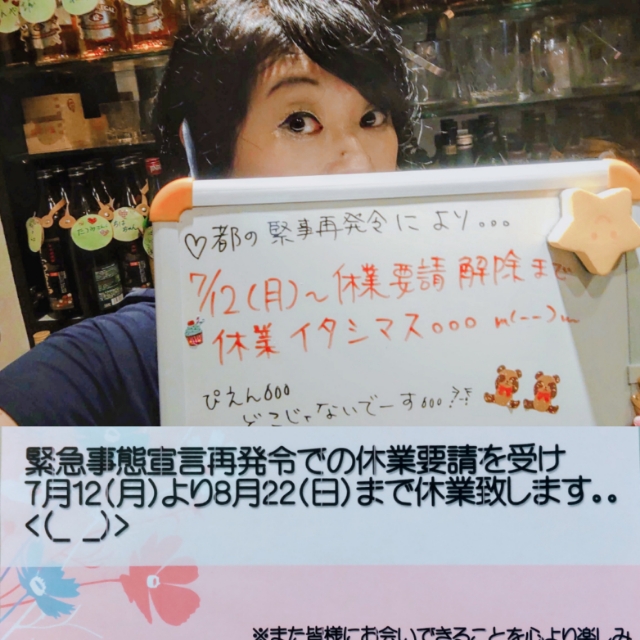 ♡都の緊事再発令により。。。
7/12(月)～休業要請解除まで
休業イタシマス。。。m(--)m
ぴえん。。。
どこじゃないでーす。。。??
緊急事態宣言再発令での休業要請を受け
7月12(月)より8月22(日)まで休業致します。。
<(_ _)>
※また皆様にお会いできることを心より楽しみ